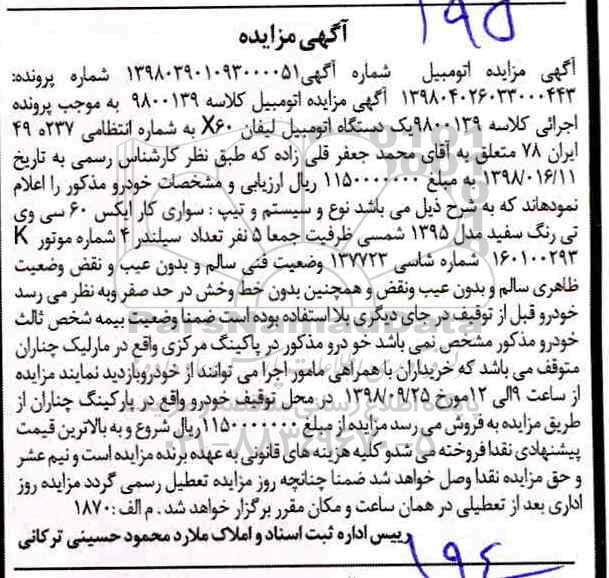 ۱۹۵
آگهی مزایده
آگهی مزایده اتومبیل شماره آگهی۱۳۹۸۰۳۹۰۱۰۹۳۰۰۰۰۵۱ شماره پرونده:
۱۳۹۸۰۴۰۲۶۰۳۳۰۰۰۴۴۳ آگهی مزایده اتومبیل کلاسه ۹۸۰۰۱۳۹ به موجب پرونده
اجرائی کلاسه ۹۸۰۰۱۳۹یک دستگاه اتومبیل لیفان X۶۰ به شماره انتظامی ۲۳۷ه ۴۹
ایران ۷۸ متعلق به آقای محمد جعفر قلی زاده که طبق نظر کارشناس رسمی به تاریخ
۱۳۹۸/۰۱۶/۱۱ به مبلغ ۱۱۵۰۰۰۰۰۰۰ ریال ارزیابی و مشخصات خودرو مذکور را اعلام
نموده‌اند که به شرح ذیل می باشد نوع و سیستم و تیپ : سواری کار ایکس ۶۰ سی وی
تی رنگ سفید مدل ۱۳۹۵ شمسی ظرفیت جمعا ۵ نفر تعداد سیلندر ۴ شماره موتور K
۱۶۰۱۰۰۲۹۳ شماره شاسی ۱۳۷۷۲۳ وضعیت فنی سالم و بدون عیب و نقض وضعیت
ظاهری سالم و بدون عیب ونقض و همچنین بدون خط وخش در حد صفر وبه نظر می رسد
خودرو قبل از توقیف در جای دیگری بلا استفاده بوده است ضمنا وضعیت بیمه شخص ثالث
خودرو مذکور مشخص نمی باشد خو درو مذکور در پاکینگ مرکزی واقع در مارلیک چناران
متوقف می باشد که خریداران با همراهی مامور اجرا می توانند از خودروبازدید نمایند مزایده
از ساعت ۹الی ۱۲مورخ ۱۳۹۸/۰۹/۲۵ در محل توقیف خودرو واقع در پارکینگ چناران از
طریق مزایده به فروش می رسد مزایده از مبلغ ۱۱۵۰۰۰۰۰۰۰ ریال شروع و به بالاترین قیمت
پیشنهادی نقدا فروخته می شدو کلیه هزینه های قانونی به عهده برنده مزایده است و نیم عشر
و حق مزایده نقدا وصل خواهد شد ضمنا چنانچه روز مزایده تعطیل رسمی گردد مزایده روز
اداری بعد از تعطیلی در همان ساعت و مکان مقرر برگزار خواهد شد . م الف :۱۸۷۰
رییس اداره ثبت اسناد و املاک ملارد محمود حسینی ترکانی